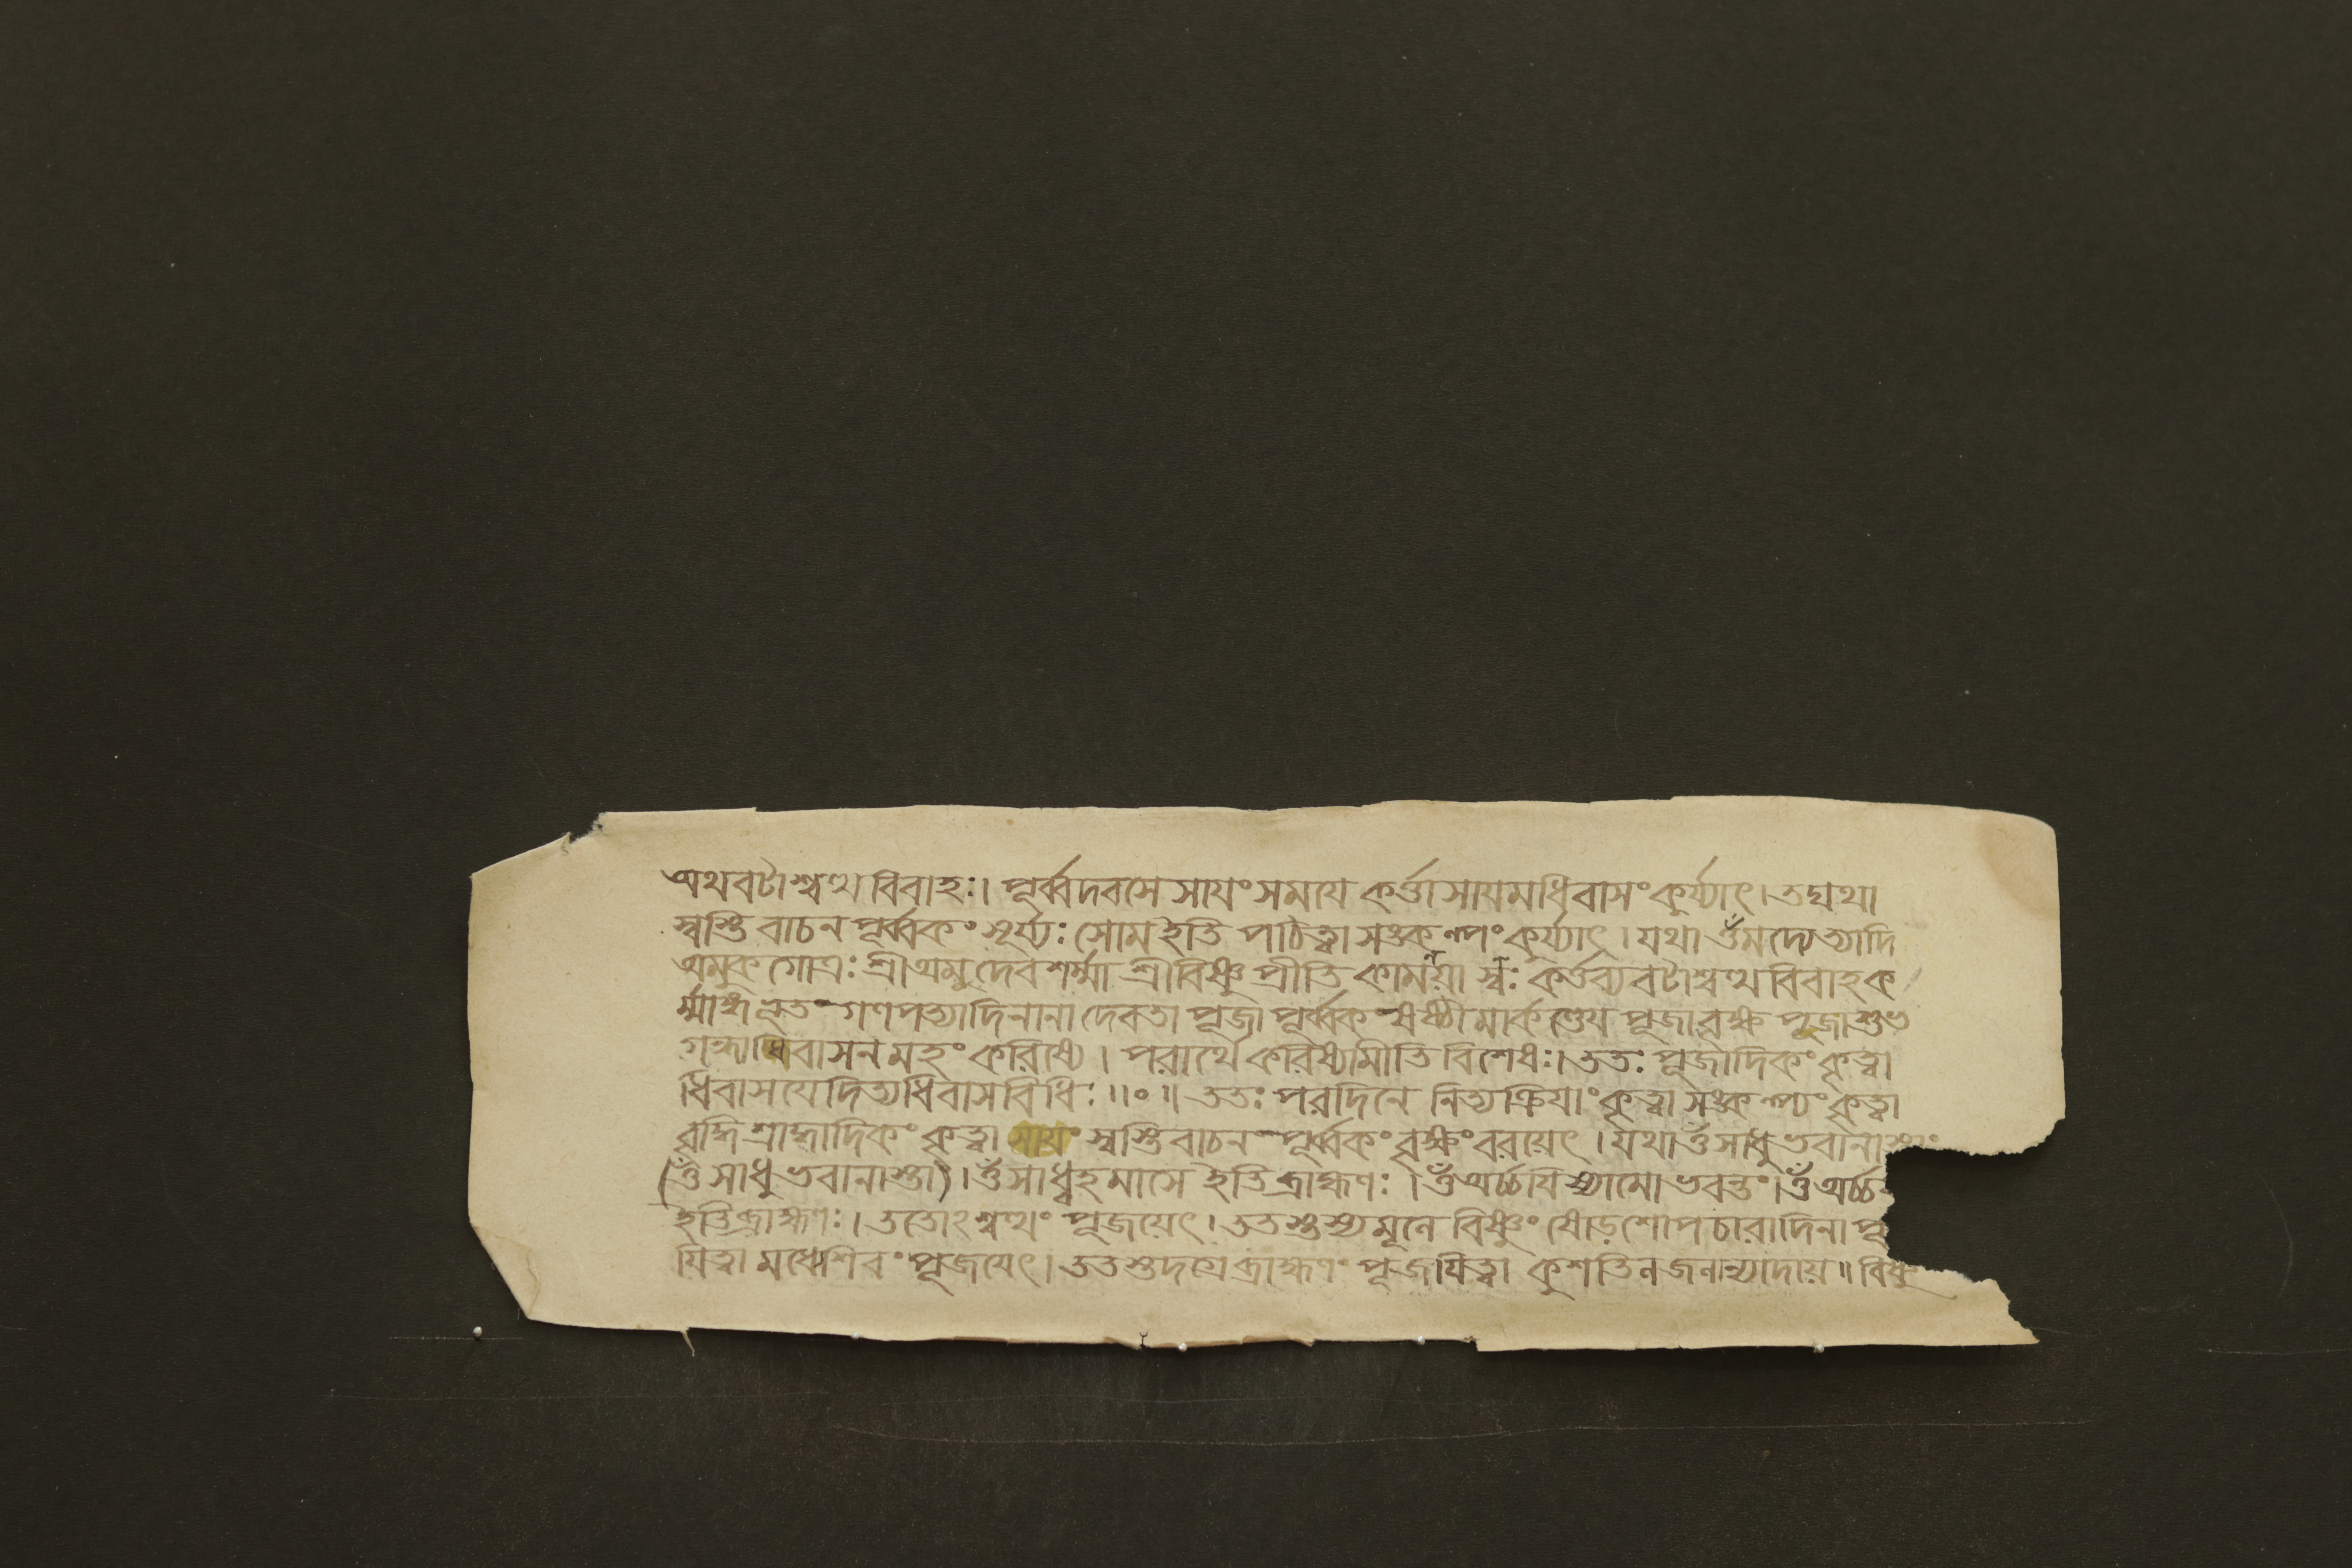 অথবটাশ্বত্থবিবাহঃ। পূর্ব্বদবসে সায়ংসময়ে কর্ত্তা সায়মধিবাসংকুর্য্যাৎ। তদ্যথা
স্বস্তিবাচনপূর্ব্বকং সূর্য্যঃ সোমইতি পঠিত্বা সঙ্কল্পংকুর্য্যাৎ। যথা ওঁমদ্যেত্যাদি
অমুকগোত্রঃ শ্রীঅমুদেবশর্ম্মা শ্রীবিষ্ণুপ্রীতিকাময়া শ্বঃ কর্ত্তব্যবটাশ্বত্থবিবাহক
র্ম্মাঙ্গভূতং গণপত্যাদিনানাদেবতাপূজাপূর্ব্বকং ষষ্ঠীমার্কণ্ডেয়পূজাবৃক্ষপূজাশুভ
গন্ধাধিবাসনমহং করিষ্যে। পরার্থে করিষ্যামীতিবিশেষঃ। ততঃ পূজাদিকং কৃত্বা
ধিবাসয়েদিত্যধিবাসবিধিঃ॥০॥ ততঃ পরদিনে নিত্যক্রিয়াং কৃত্বা সঙ্কল্প্যং কৃত্বা
বৃদ্ধিশ্রাদ্ধাদিকং কৃত্বা সায়ং স্বস্তিবাচনং পূর্ব্বকং বৃক্ষং বরয়েৎ। যথা ওঁসাধুভবানা
(ওঁসাধুভবানাস্তা)। ওঁসাধ্বহমাসে ইতিব্রাহ্মণঃ। ওঁঅর্চ্চয়িষ্যামোভবন্তং। ওঁঅর্চ্চ
ইতিব্রাহ্মণঃ। ততোঽশ্বত্থং পূজয়েৎ। ততস্তস্যমূলে বিষ্ণুং ষোড়শোপচারাদিনা পূ
য়িত্বা মধ্যেশিবং পূজয়েৎ। ততস্তদগ্রেব্রাহ্মণং পূজয়িত্বা কুশতিলজলান্যাদায়॥ বিষ্ণু